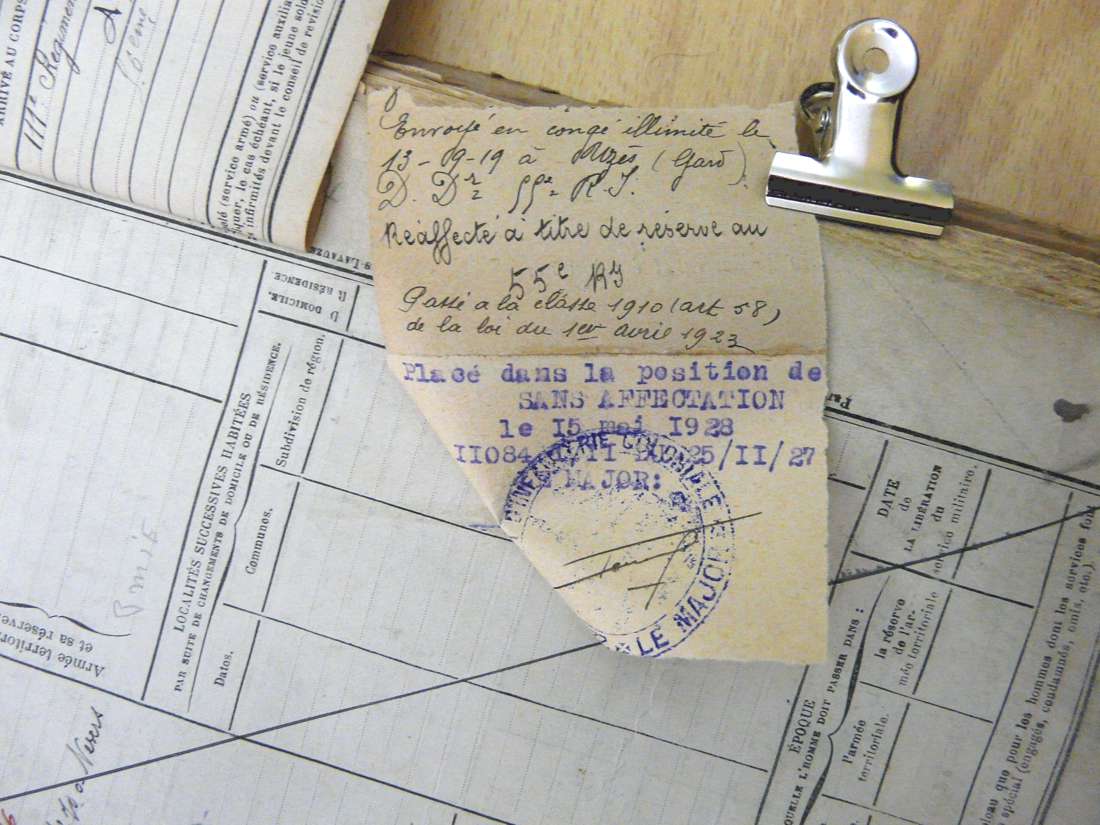 ARRIVÉ AU CORPS
111e Régiment
(service armé) ou (service auxiliaire
le cas échéant, si le jeune sol
infirmités devant le conseil de revision
Envoyé en congé illimité le
13-9-19 à Uzès (Gard)
D. Dr R. I.
Réaffecté à titre de réserve au
55e RI
Passé à la classe 1910 (art 58)
de la loi du 1er avril 1923
Placé dans la position de
SANS AFFECTATION
le I5 mai I928
II084 25/II/27
MAJOR:
LE MAJOR
D DOMICILE.
R RÉSIDENCE
LOCALITÉS SUCCESSIVES HABITÉES
PAR SUITE DE CHANGEMENTS DE DOMICILE OU DE RÉSIDENCE.
Subdivision de région.
Communes.
Dates.
Armée territori
et sa réserve
DATE
de
LA LIBÉRATION
du
service militaire.
ÉPOQUE
QUELLE L'HOMME DOIT PASSER DANS :
la réserve
de l'ar-
mée territoriale
l'armée
territoriale.
bleau que pour les hommes dont les services font
spécial (engagés, condamnés, omis, etc.)